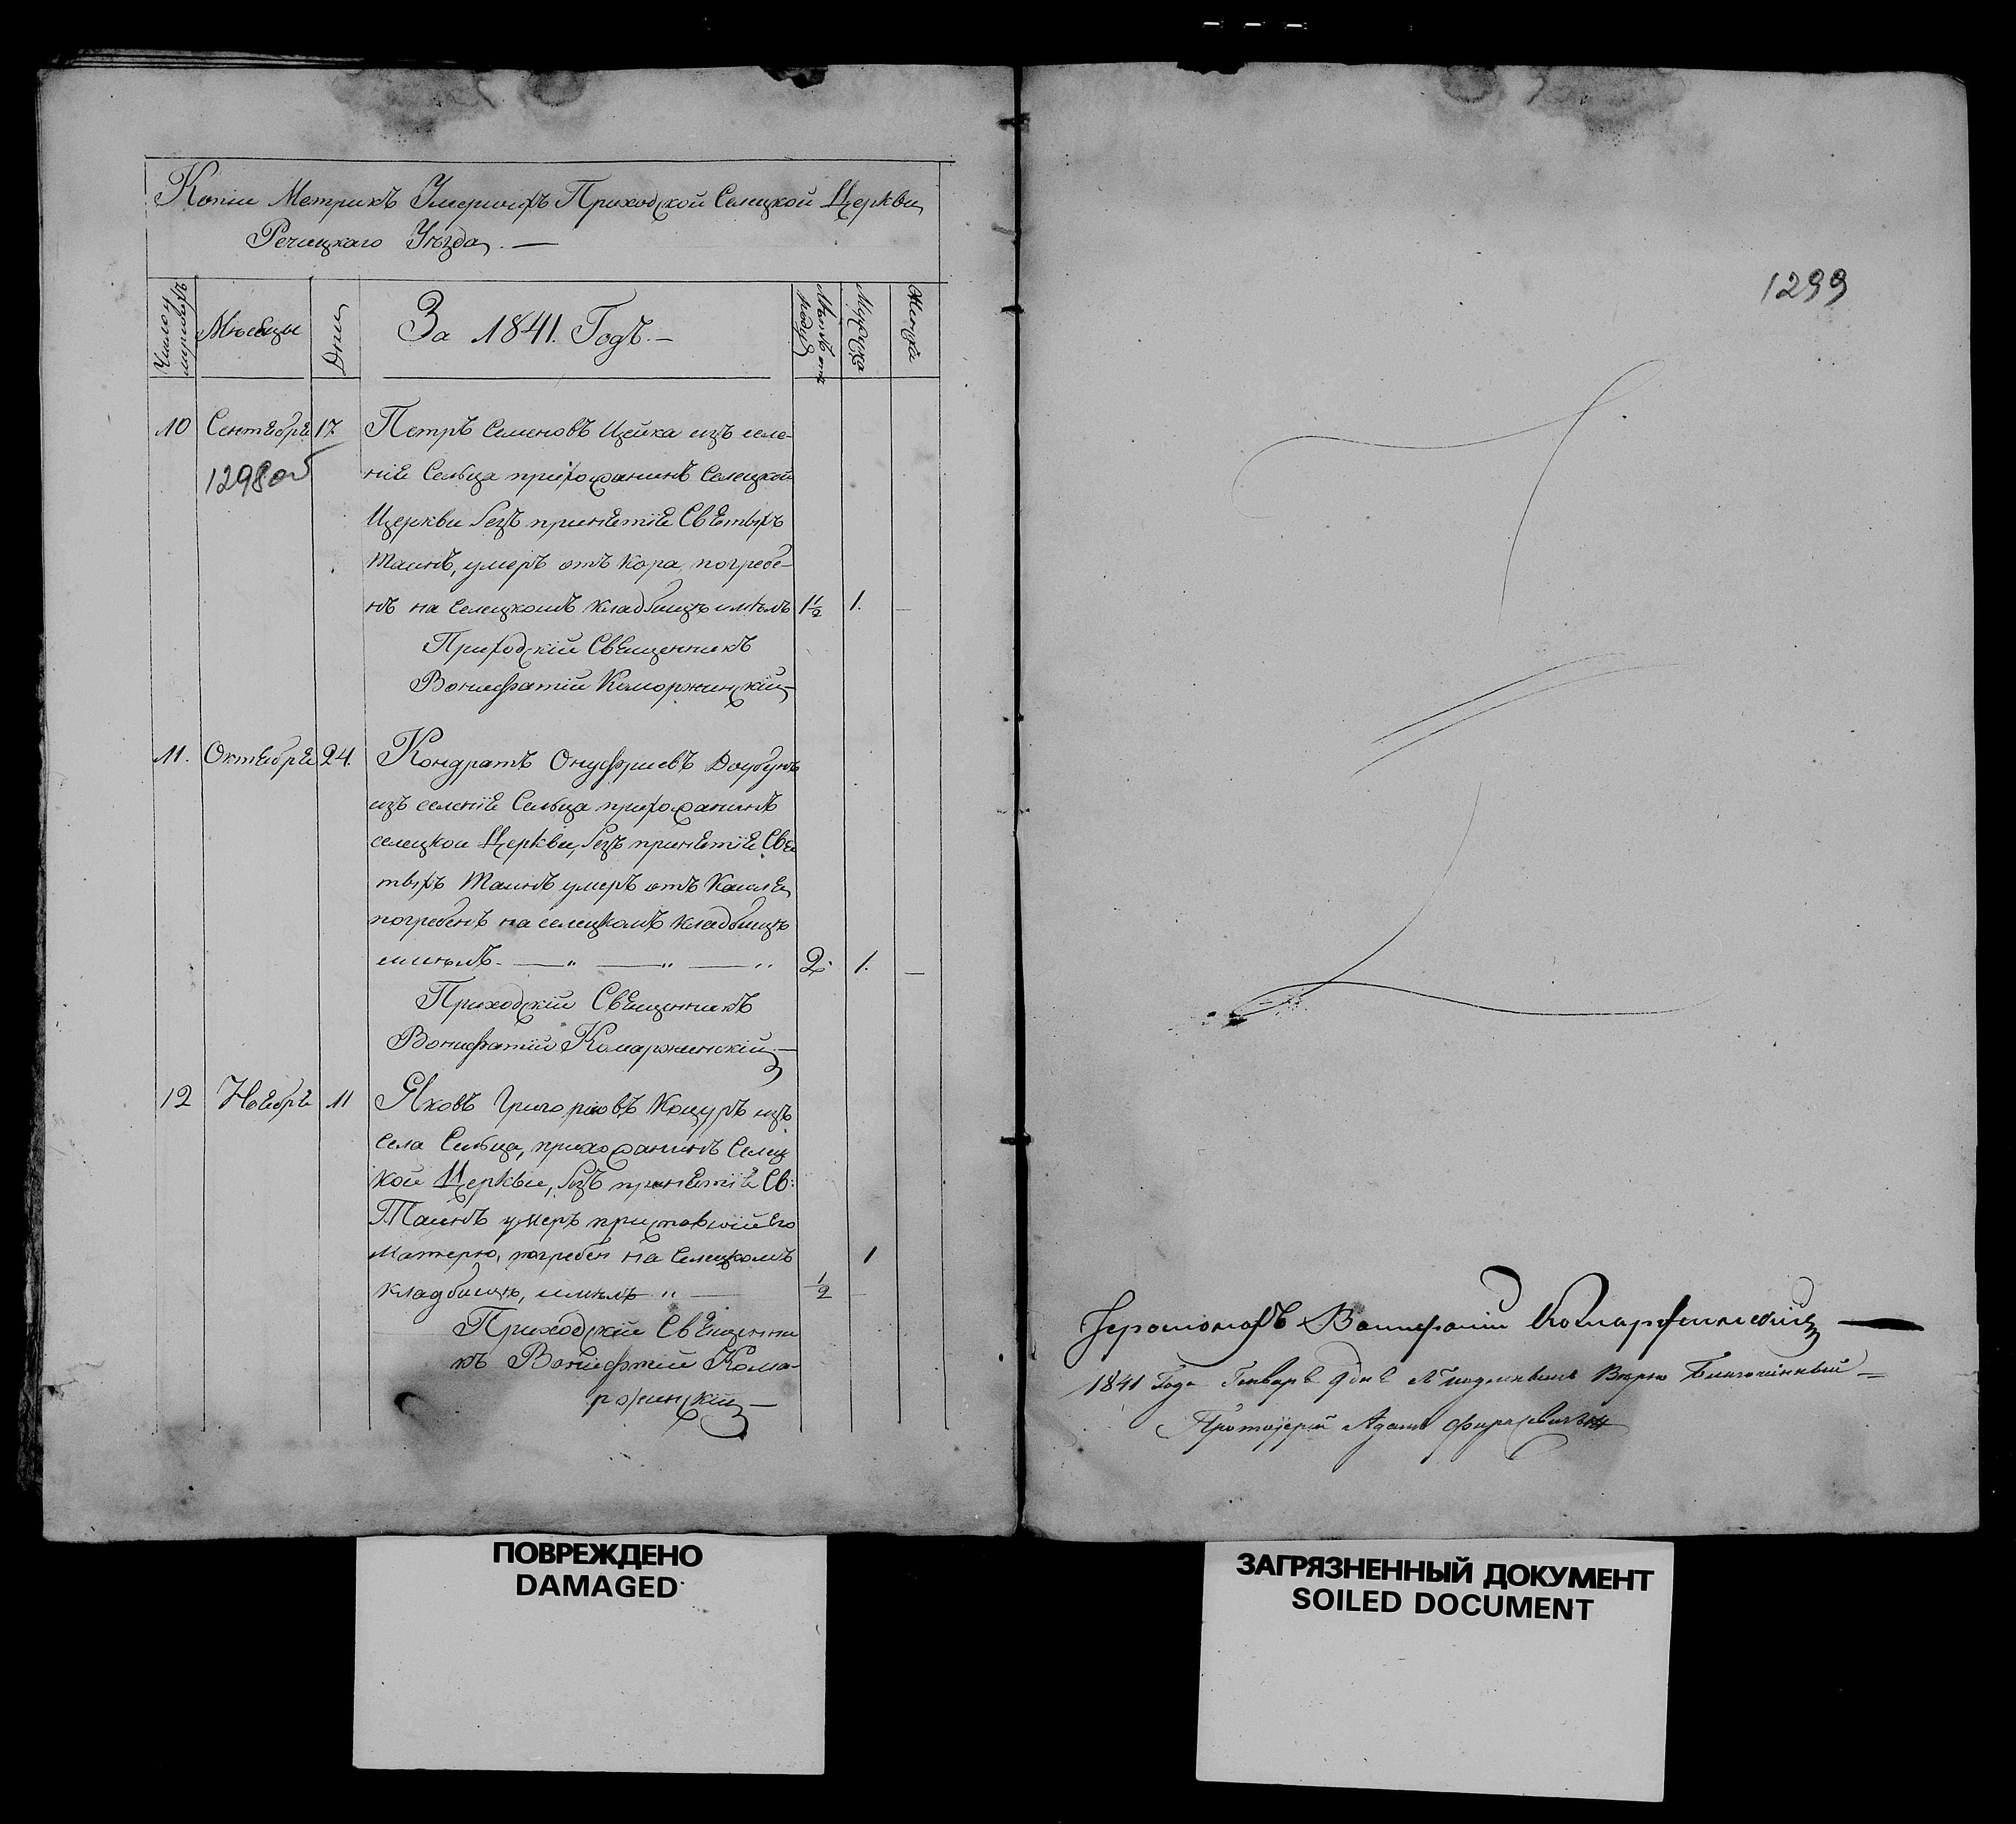 Копіи Метрикъ Умершихъ Приходской Селецкой Церкви
Речицкаго Уѣзда. —
Число умершихъ
Мѣсецы
Дни
За 1841. Годъ. —
Мужеска
Женска
10 Сентебре 17. Петръ Семеновъ Цейка изъ селе-
1298об
ніе Сельца прихожанинъ Селецкой
Церкви безъ принетіе Светыхъ
Таинъ, умеръ отъ Кора, погребе-
нъ на Селецкомъ кладбищѣ имѣлъ 1½ 1. —
Приходскій Свещенникъ
Вонифатій Коморжинскій —
11. Октебре 24. Кондратъ Онуфріевъ
изъ селеніе Сельца прихожанинъ
селецкой Церкви, безъ принетіе Све
тыхъ Таинъ умеръ отъ Кашле,
погребенъ на селецкомъ кладбищѣ
имѣлъ. — " — " — " 2. 1. —
Приходскій Свещенникъ
Вонифатій Комаржинскій —
12 Ноебре 11 Яковъ Григоріовъ Коцуръ изъ
села Сельца, прихожанинъ Селец
кой Церкви, безъ принетіе Св:
Таинъ умеръ
Матерю, погребен на Селецкомъ 1
кладбищѣ, имѣлъ " — ½ —
Приходскій Свещенни
къ Вонифатій Кома-
ржинскій —
1299
Іеромонахъ Вонифатій Комаржинскій —
1841 Года Генваре 9 дне Благочинный =
Протоіерей Адамъ
ПОВРЕЖДЕНО
DAMAGED
ЗАГРЯЗНЕННЫЙ ДОКУМЕНТ
SOILED DOCUMENT